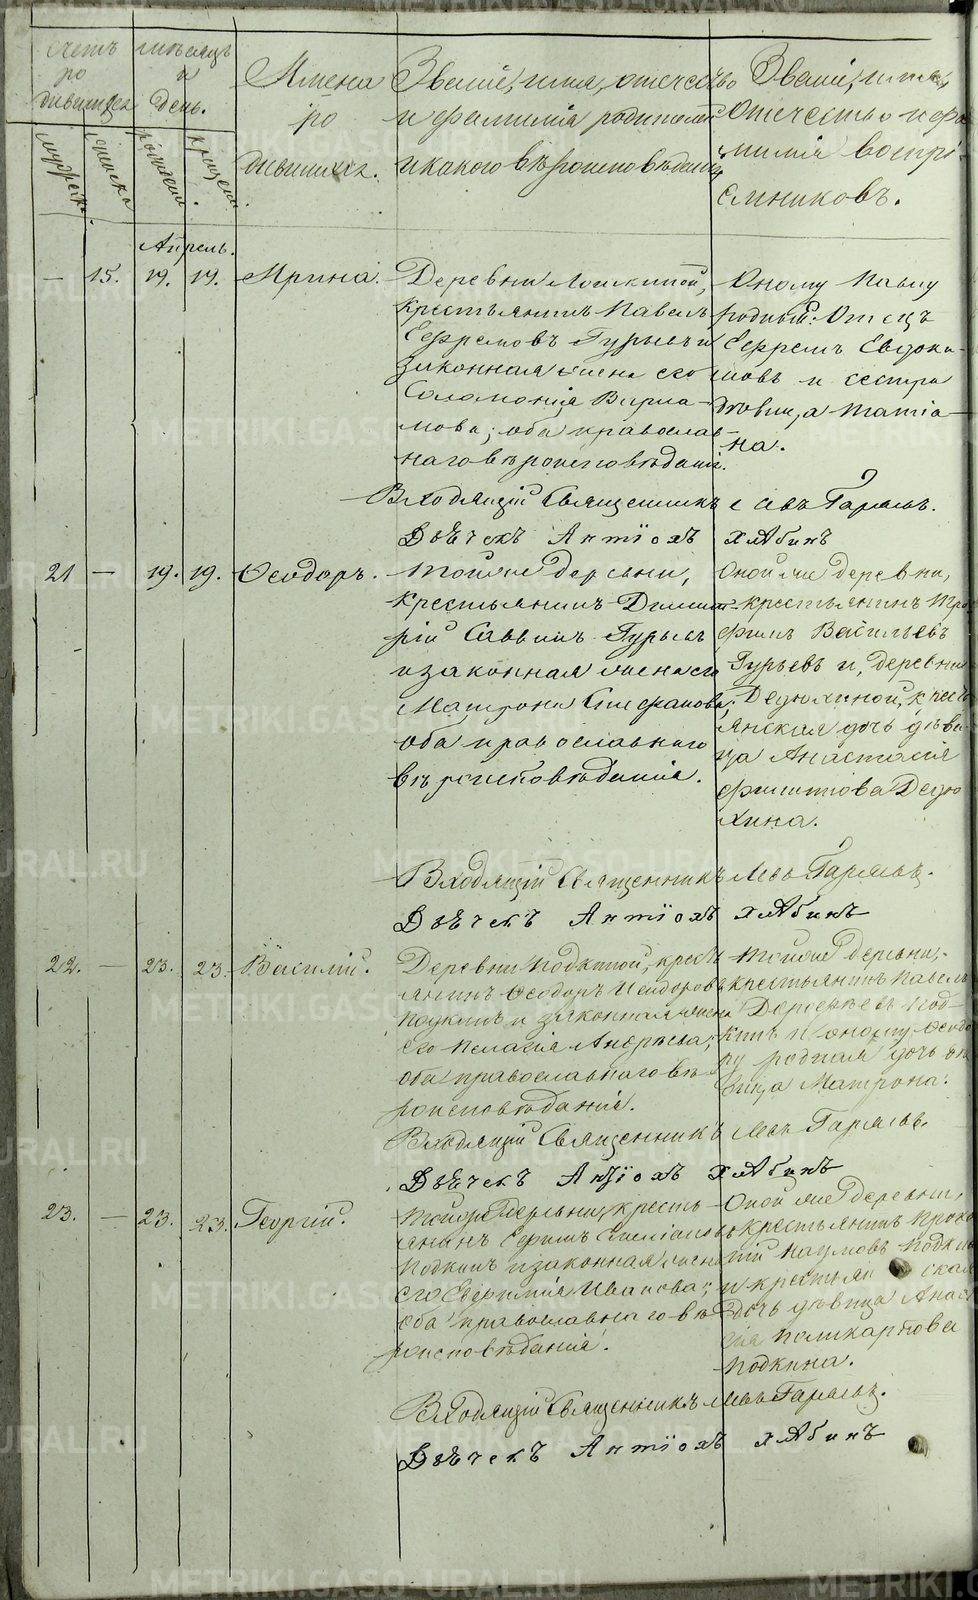 Счетъ
ро
дившихся
мужеска
женска
мѣсяцъ
и
день.
рожденія
крещенія.
Имена
ро
дившихся.
Званіе, имя, отечество
и фамилія родителей
и какого вѣроисповѣданія
Званіе, имя,
отечество и фа
милія воспрі
емниковъ.
Апрѣль.
— 15. 19. 19. Ирина.
Деревни
крестьянинъ Павелъ
Ефремовъ Гурьевъ и
законная жена его
Соломонія Варла-
мова; оба православ-
наго вѣроисповѣданія.
Оному Павлу
родный: Отецъ
Ефремъ Евдоки-
мовъ и сестра
дѣвица Татіа-
на.
Входящій Священникъ Левъ Гаряевъ.
Дьячекъ Антіохъ Хлябинъ
21 — 19. 19. Ѳеодоръ.
Тойже деревни,
крестьянинъ Димит-
рій Саввинъ Гурьевъ
и законная жена его
Матрона Стефанова;
оба православнаго
вѣроисповѣданія.
Оной же деревни,
крестьянинъ Тро-
фимъ Васильевъ
Гурьевъ и, деревни
Дедюхиной, кресть
янская дочь дѣви
ца Анастасія
Филиппова Дедю
хина.
Входящій Священникъ Левъ Гаряевъ.
Дьячекъ Антіохъ Хлябинъ
22. — 23. 23. Василій.
Деревни Подкиной, кресть
янинъ Ѳеодоръ Исидоровъ
Подкинъ и законная жена
его Пелагія Андреева;
оба православнаго вѣ
роисповѣданія.
Тойже деревни,
крестьянинъ Павелъ
Под-
кинъ и оному Ѳеодо
ру родная дочь дѣ
вица Матрона.
Входящій Священникъ Левъ Гаряевъ.
Дьячекъ Антіохъ Хлябинъ
23. — 23. 23. Георгій.
Тойже деревни, кресть
янинъ Ефимъ Емеліановъ
Подкинъ и законная жена
его Евфимія Иванова;
оба православнаго вѣ
роисповѣданія.
Оной же деревни,
крестьянинъ Проко
пій Наумовъ Подкинъ
и крестьянская
дочь дѣвица Анаста
сія Поликарпова
Подкина.
Входящій Священникъ Левъ Гаряевъ.
Дьячекъ Антіохъ Хлябинъ
METRIKI.GASO-URAL.RU